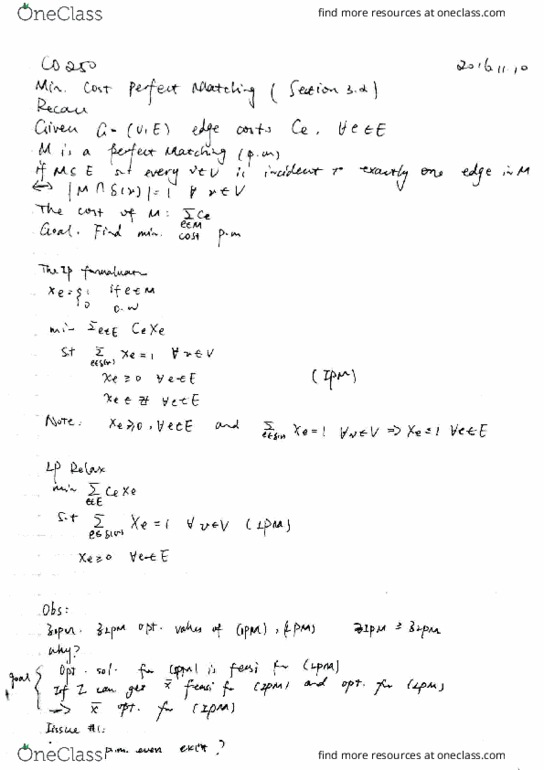 OneClass
find more resources at oneclass.com
CO 250
2016.11.10
Min. Cost perfect Matching ( Section 3.2 )
Recall
Given G = (V, E) edge costs Ce, ∀e∈E
M is a perfect Matching (p.m)
if M ⊆ E s.t every v∈V is incident to exactly one edge in M
⟺ |M ∩ δ(v)| = 1 ∀ v∈V
The cost of M: Σ_{e∈M} Ce
Goal. Find min. cost p.m
The IP formulation
Xe = { 1 if e∈M
0 o.w
min Σ_{e∈E} CeXe
s.t Σ_{e∈δ(v)} Xe = 1 ∀ v∈V
Xe ≥ 0 ∀e∈E
(IPM)
Xe ∈ Z ∀e∈E
Note: Xe ≥ 0, ∀e∈E and Σ_{e∈δ(v)} Xe = 1 ∀v∈V => Xe ≤ 1 ∀e∈E
LP Relax
min Σ_{e∈E} CeXe
s.t Σ_{e∈δ(v)} Xe = 1 ∀ v∈V (LPM)
Xe ≥ 0 ∀e∈E
Obs:
opt. values of (IPM), (LPM)
why?
goal
Opt. sol. for (IPM) is feasi for (LPM)
If I can get x̄ feasi for (IPM) and opt. for (LPM)
-> x̄ opt. for (IPM)
Issue #1:
p.m. even exist?
OneClass
find more resources at oneclass.com